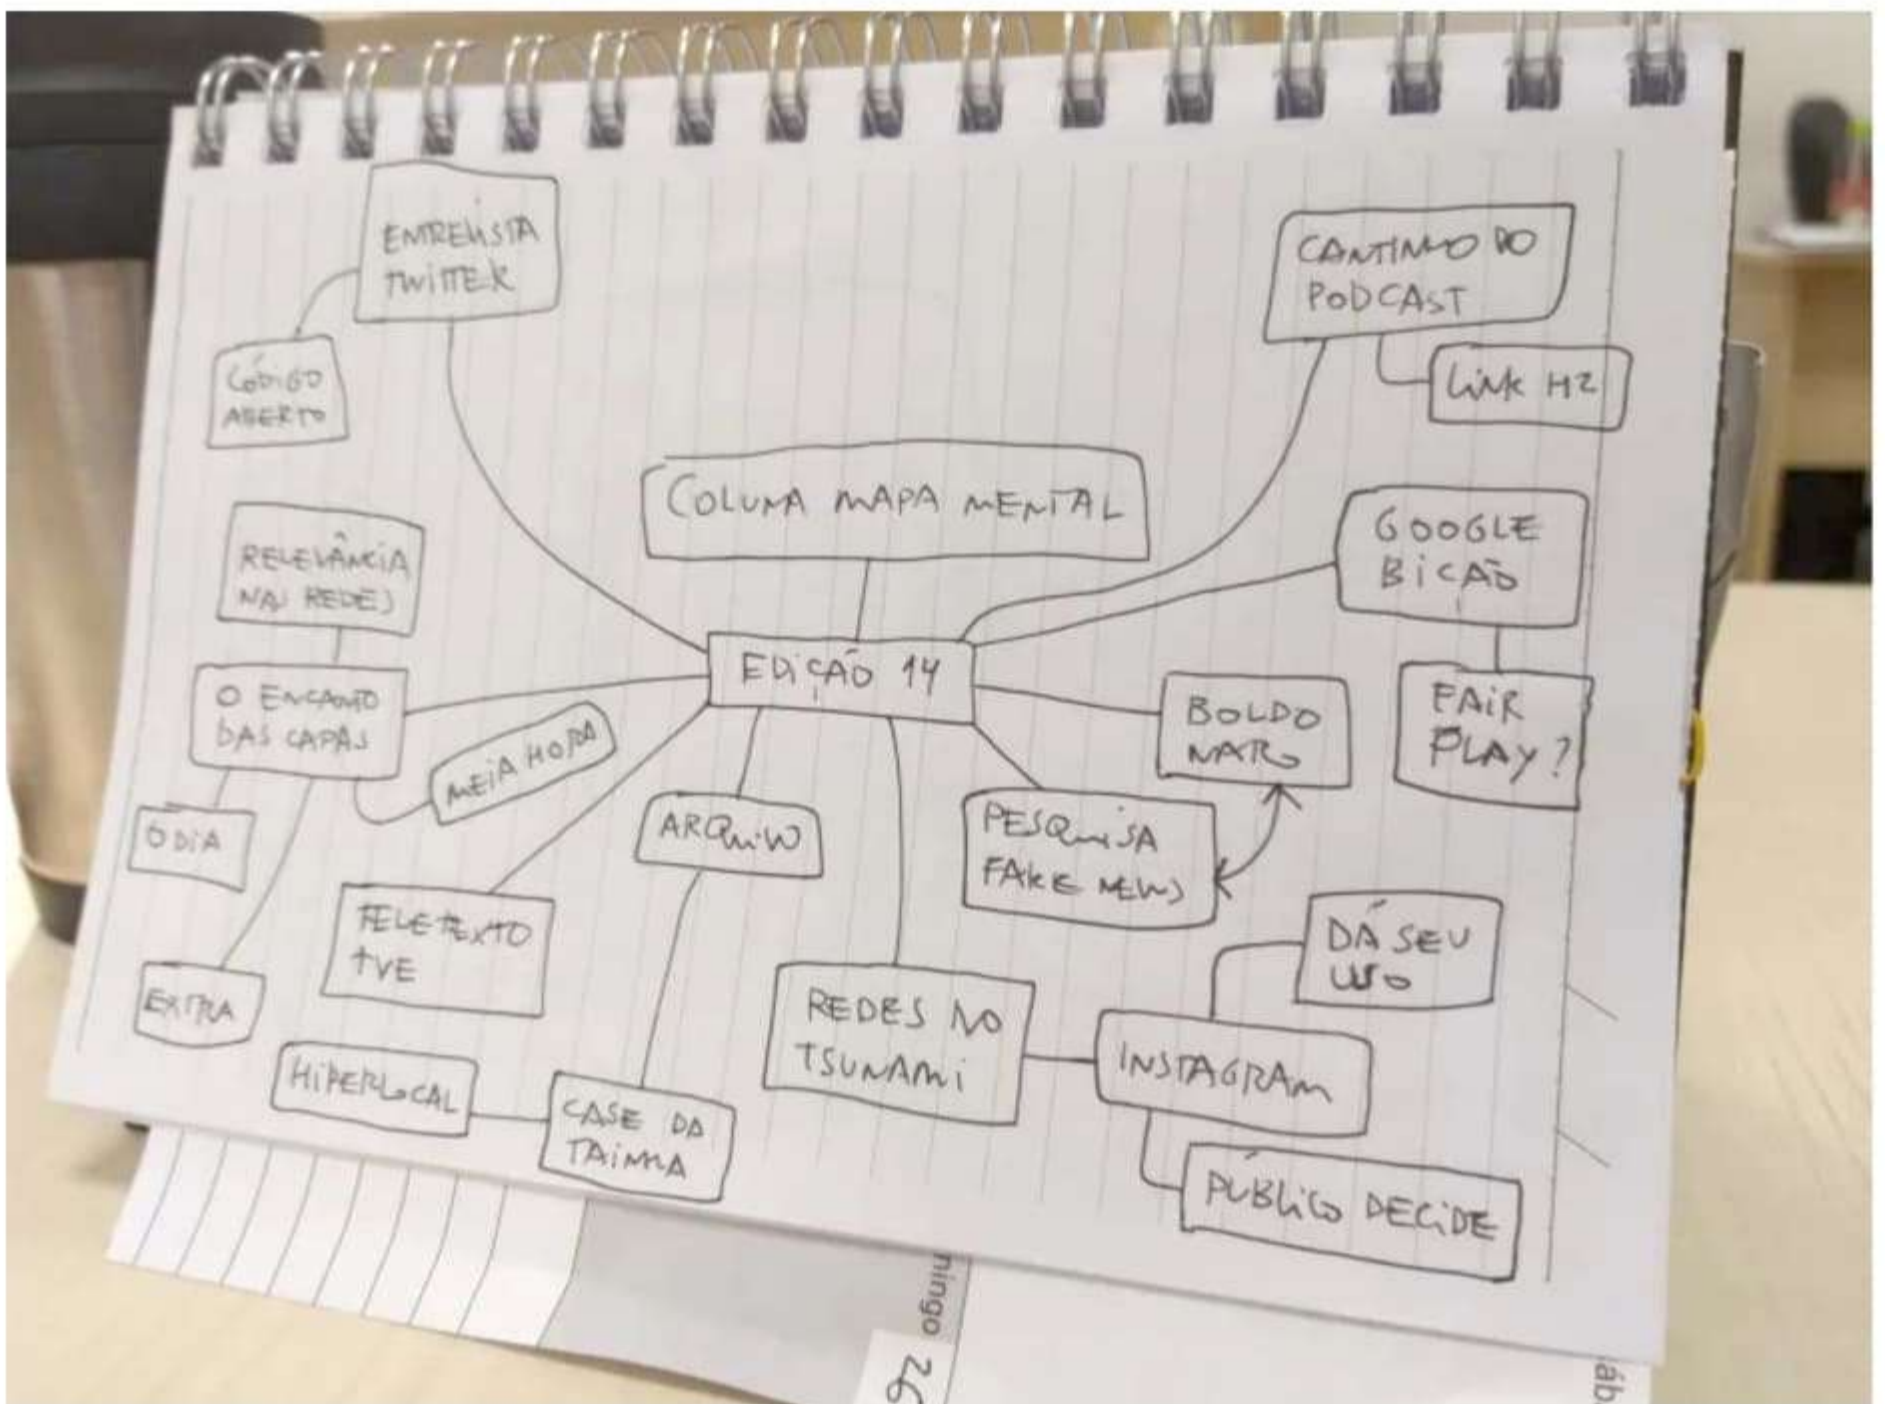 ENTREVISTA
TWITTER
CÓDIGO
ABERTO
CANTINHO DO
PODCAST
LINK HZ
COLUNA MAPA MENTAL
GOOGLE
BICÃO
FAIR
PLAY?
RELEVÂNCIA
NAS REDES
O ENCANTO
DAS CAPAS
MEIA HORA
O DIA
EXTRA
EDIÇÃO 14
BOLDO
NARO
PESQUISA
FAKE NEWS
ARQUIVO
TELETEXTO
TVE
HIPERLOCAL
CASE DA
TAINHA
REDES NO
TSUNAMI
INSTAGRAM
DÁ SEU
PÚBLICO DECIDE
ningo 26
áb